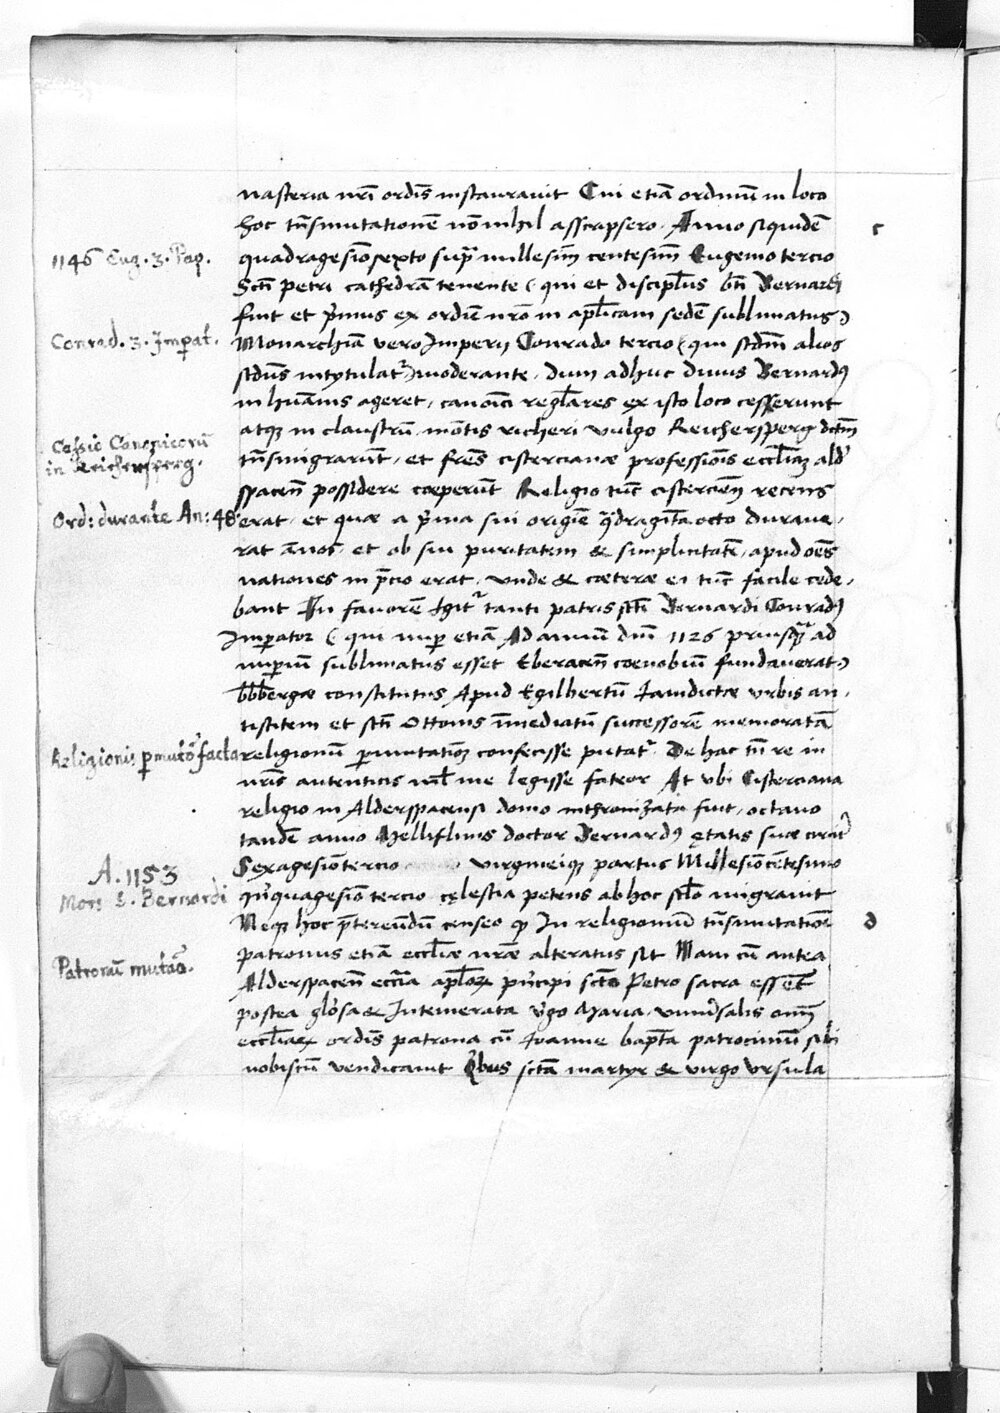 nasteria nr̄i ordīs instauravit Cui etiā ordinū in loco
hoc trn̄smutationē nōnihil asscripsero. Anno siquidē
c
1146 Eug. 3. Pap.
quadragesiō sexto supra millesim̄ centesim̄ Eugenio tercio
Sct̄i petri cathedrā tenente (qui et discipl̄us bt̄i Bernardi
fuit et p̄mus ex ordīe nr̄o in apl̄icam sedē sublimatus)
Conrad. 3. Imp̄at.
Monarchiā vero Imperij Conrado tercio (qui scd̄m alios
scd̄us intytulat̄) moderante, dum adhuc divus Bernardꝰ
in huāis ageret, canoīci regl̄ares ex isto loco cesserunt
Cessio Canonicorū
in Reichersperg.
atqꝫ in claustrū mōtis richeri vulgo Reichersperg dict̄m
trn̄smigrarūt, et fr̄es cistercianæ professiōis eccl̄iaꝫ alder
spacen̄ possidere cœperūt Religio tūc cistercien̄ recens
Ord: durante An: 48
erat, et quæ a p̄ma sui origīe q̄dragīta octo durave,
rat an̄os, et ob sui puritatem & simplicitatē, apud oēs
nationes in p̄cio erat, unde & cœteræ ei tūc facile cede,
bant In favorē igit̄ tanti patris sct̄i Bernardi Conradꝰ
Imperator (qui nup̄ etiā Ad annū dn̄i 1126 priusq̄ ad
imperiū sublimatus esset Eberacen̄ cœnobiū fundaverat)
bbbergæ constitutus Apud Egilbertū iamdictæ urbis an,
tistitem et sct̄i Ottonis īmediatū successorē memoratā
Religionis p̱mutō facta
religionū p̱mutatiōꝫ confecisse putat̄. De hac tn̄ re in
nr̄is autenticis nil me legisse fateor At ubi Cisterciana
religio in Alderspacensi domo inthronizata fuit, octavo
tandē anno Mellifluus doctor Bernardꝰ ętatis suæ cirai͛
Sexagesiō tercio virgineiqꝫ partus Millesiō cētesimo
A. 1153
Mors S. Bernardi
qn̄quagesiō tercio cęlestia petens ab hoc scl̄o migravit
Neqꝫ hoc p̄tereūdū censeo qꝫ In religionū trn̄smutatiōe
d
patronus etiā eccl̄iæ nr̄æ alteratus sit Nam cū antea
Patronū mutāō.
Alderspacen̄ eccl̄ia apl̄oꝝ pn̄cipi sct̄o Petro sacra esset
postea glōsa & Intemerata v̄go Maria, univ̄salis om̄
eccl̄iaꝝ ordīs patrona cū Joanne bapt̄a patrociniū sibi
nobiscū vendicavit Qībus sct̄a martyr & virgo Ursula